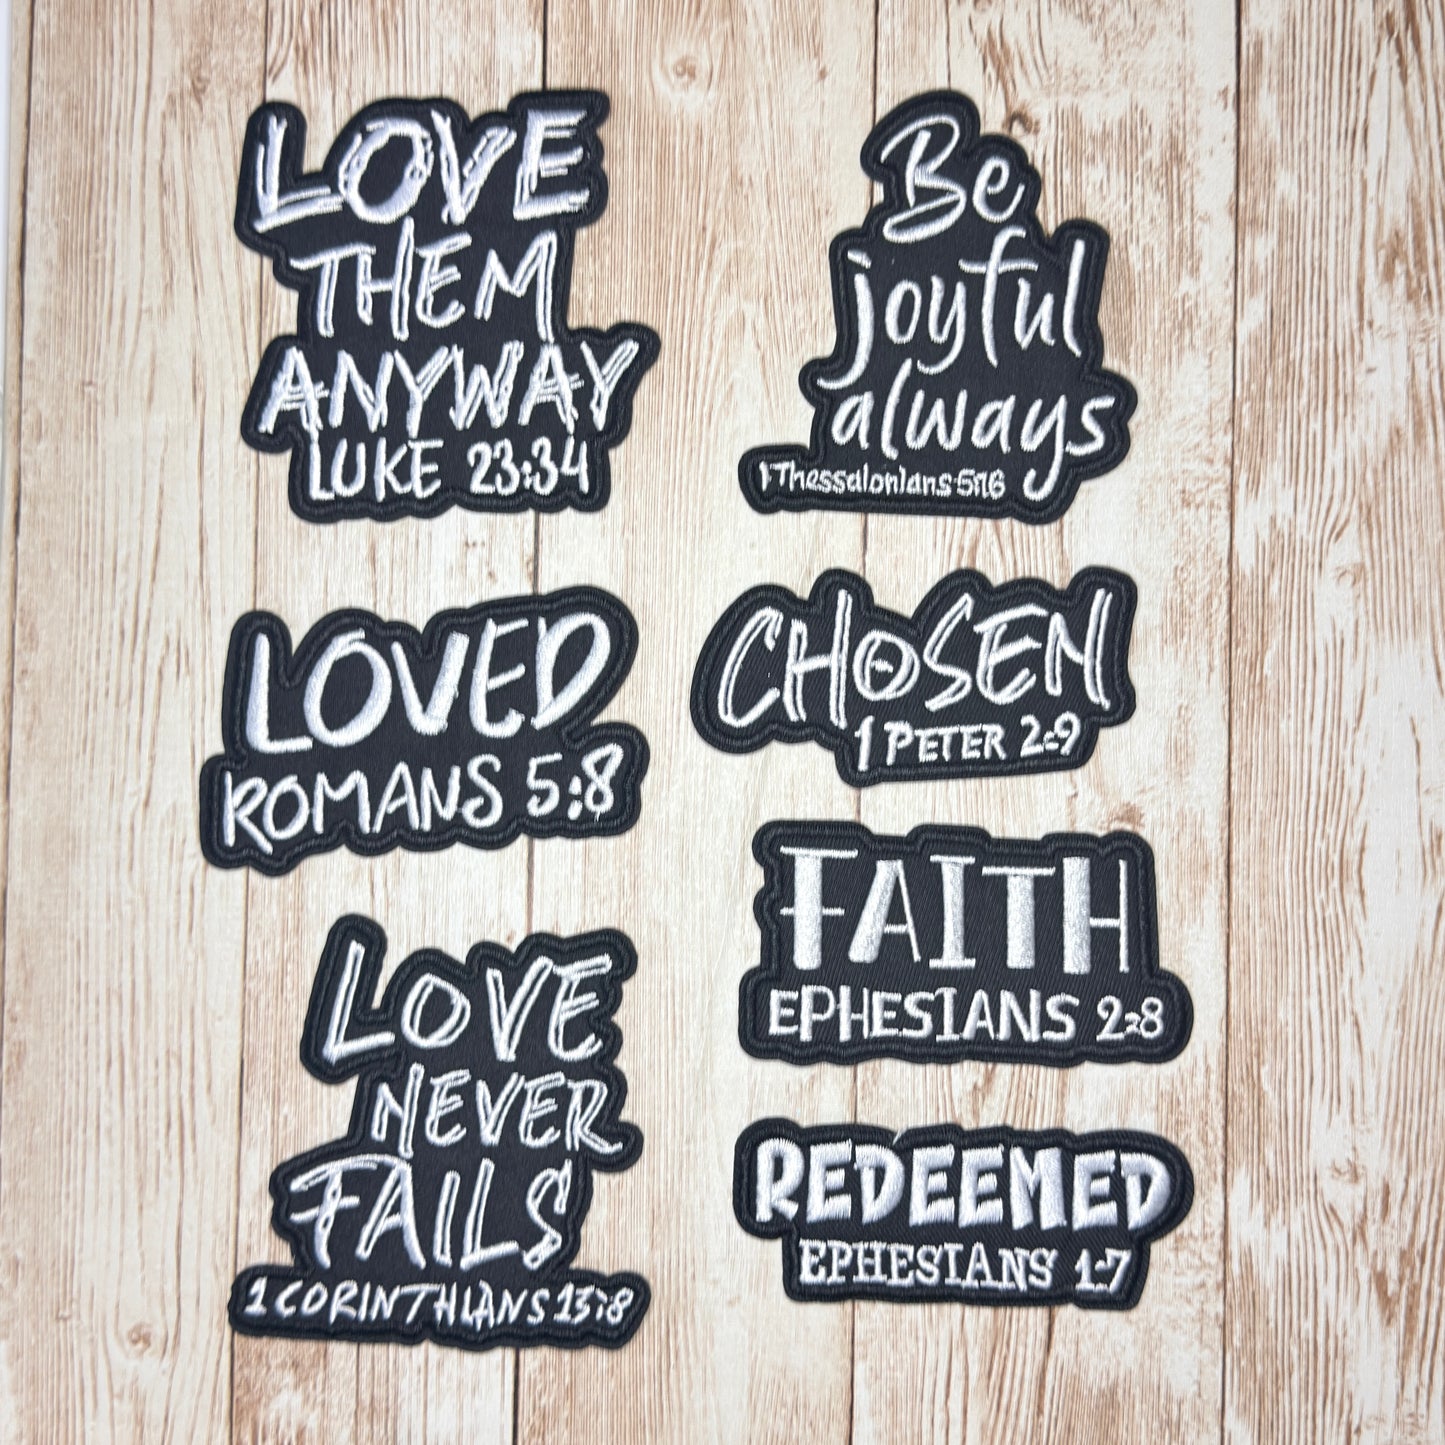 LOVE
THEM
ANYWAY
LUKE 23:34
Be
joyful
always
1 Thessalonians 5:16
LOVED
ROMANS 5:8
CHOSEN
1 PETER 2:9
FAITH
EPHESIANS 2:8
LOVE
NEVER
FAILS
1 CORINTHIANS 13:8
REDEEMED
EPHESIANS 1:7